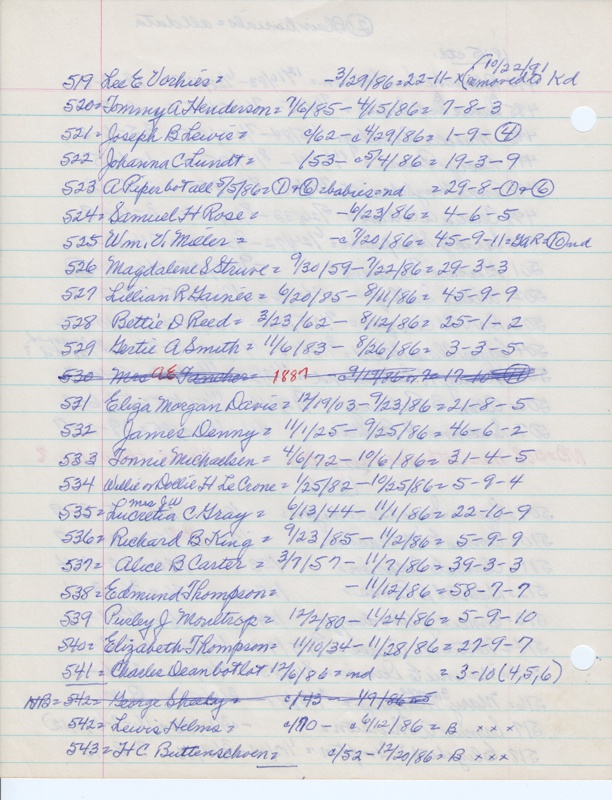 10/22/91
519 Lee E Vorhies = -3/29/86=22-11-x (removed to Kd
520=Tommy A Henderson= 7/6/85-4/15/86= 7-8-3
521= Joseph B Lewis= c/62-c4/29/86= 1-9-④
522= Johanna C Lundt= 153-c5/4/86= 19-3-9
523 A Piperbotall 5/5/86=①+⑥=babies=nd =29-8-①+⑥
524= Samuel H Rose= -6/23/86= 4-6-5
525 Wm. V. Mieler= -c7/20/86= 45-9-11=GaR=⑩nd
526 Magdalene S Struve= 9/30/59-7/22/86=29-3-3
527 Lillian R Gaines= 6/20/85-8/11/86= 45-9-9
528 Bettie D Reed= 3/23/62- 8/12/86= 25-1-2
529 Gertie A Smith= 11/6/83- 8/26/86= 3-3-5
530= Mrs AE 1887 c9/19/86
531 Eliza Morgan Davis= 12/19/03-9/23/86=21-8-5
532 James Denny= 11/1/25-9/25/86= 46-6-2
533 Fonnie Michaelsen= 4/6/72-10/6/86= 31-4-5
534 Willie or Dollie H LeCrone= 1/25/82-10/25/86= 5-9-4
mrs JW
535= Lucretia C Gray= 6/13/44-11/1/86= 22-10-9
536= Richard B King= 9/23/85-11/2/86= 5-9-9
537= Alice B Carter= 3/7/57-11/7/86= 39-3-3
538= Edmund Thompson= -11/12/86=58-7-7
539 Pusley J Moultrop= 12/2/80-11/24/86= 5-9-10
540= Elizabeth Thompson= 11/10/34-11/28/86= 27-9-7
541= Charles Dean botlot 12/6/86= nd = 3-10(4,5,6)
NB=542= George = c/43-
542= Lewis Helms= c/70-c6/12/86= B x x x
543=H C Buttenschoen= c/52-12/20/86= B x x x